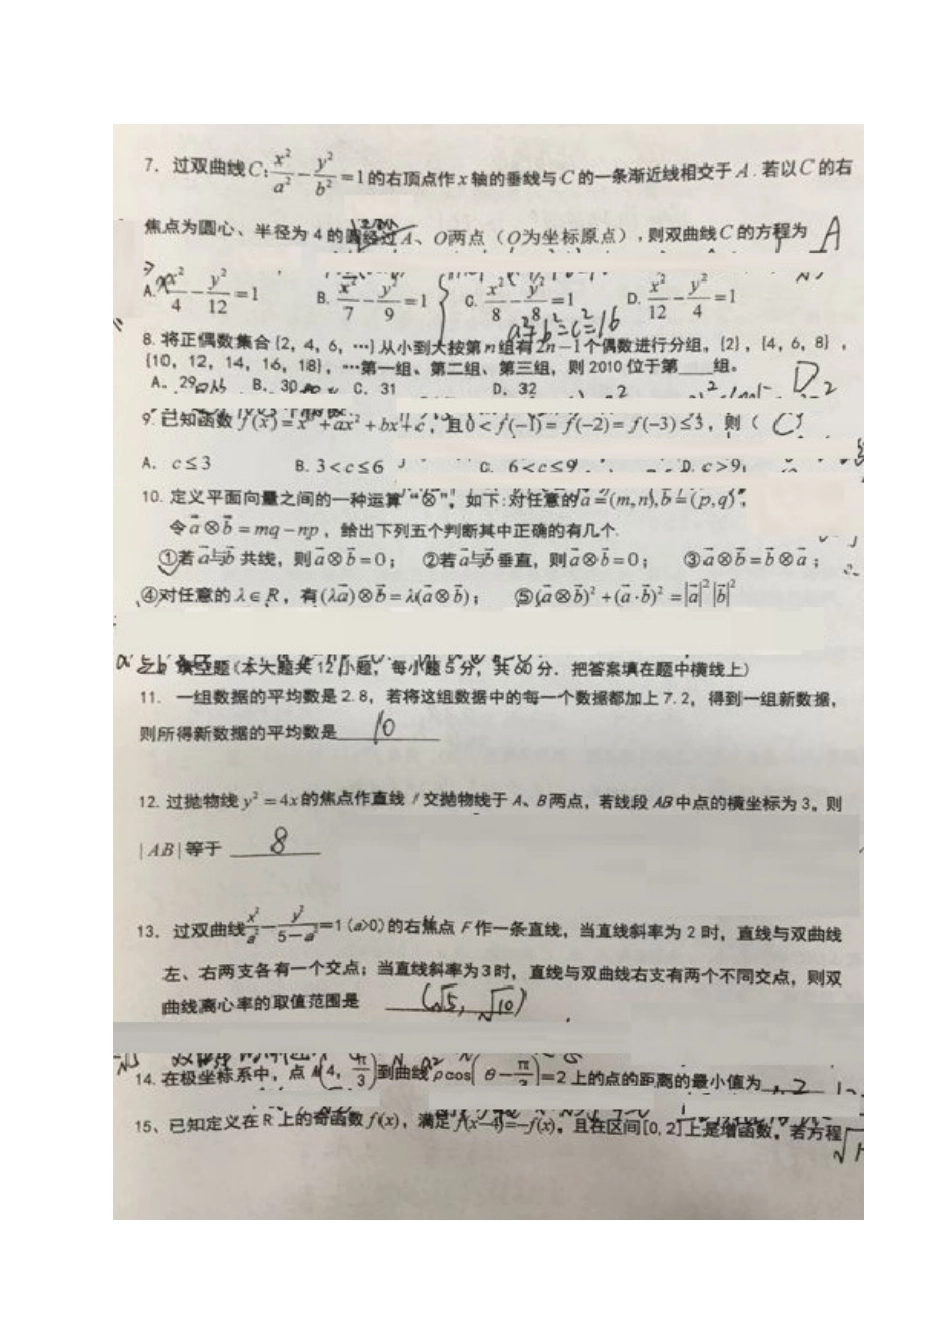 7. 过双曲线C: x²/a² − y²/b² =1的右顶点作x轴的垂线与C的一条渐近线相交于A.若以C的右
焦点为圆心、半径为4的圆经过A、O两点（O为坐标原点）,则双曲线C的方程为 A
A. x²/4 − y²/12 =1 B. x²/7 − y²/9 =1 C. x²/8 − y²/8 =1 D. x²/12 − y²/4 =1
a²+b²=c²=16
8. 将正偶数集合{2, 4, 6, …}从小到大按第n组有2n−1个偶数进行分组, {2}, {4, 6, 8},
{10, 12, 14, 16, 18}, …第一组、第二组、第三组, 则2010位于第___组。
A. 29 B. 30 C. 31 D. 32 D
9. 已知函数f(x)=x³+ax²+bx+c, 且0<f(−1)=f(−2)=f(−3)≤3, 则（ C ）
A. c≤3 B. 3<c≤6 C. 6<c≤9 D. c>9
10. 定义平面向量之间的一种运算“⊗”, 如下:对任意的a⃗=(m,n),b⃗=(p,q),
令a⃗⊗b⃗=mq−np, 给出下列五个判断其中正确的有几个.
①若a⃗与b⃗共线, 则a⃗⊗b⃗=0; ②若a⃗与b⃗垂直, 则a⃗⊗b⃗=0; ③a⃗⊗b⃗=b⃗⊗a⃗;
④对任意的λ∈R, 有(λa⃗)⊗b⃗=λ(a⃗⊗b⃗); ⑤(a⃗⊗b⃗)²+(a⃗·b⃗)²=|a⃗|²|b⃗|²
填空题(本大题共12小题, 每小题5分, 共60分. 把答案填在题中横线上)
11. 一组数据的平均数是2.8, 若将这组数据中的每一个数据都加上7.2, 得到一组新数据,
则所得新数据的平均数是 10
12. 过抛物线y²=4x的焦点作直线l交抛物线于A、B两点, 若线段AB中点的横坐标为3, 则
|AB|等于 8
13. 过双曲线 x²/a² − y²/(5−a²) =1(a>0)的右焦点F作一条直线, 当直线斜率为2时, 直线与双曲线
左、右两支各有一个交点; 当直线斜率为3时, 直线与双曲线右支有两个不同交点, 则双
曲线离心率的取值范围是 (√5, √10)
14. 在极坐标系中, 点M(4, π/3)到曲线ρcos(θ−π/3)=2上的点的距离的最小值为 2
15、已知定义在R上的奇函数f(x), 满足f(x−4)=−f(x), 且在区间[0,2]上是增函数。若方程